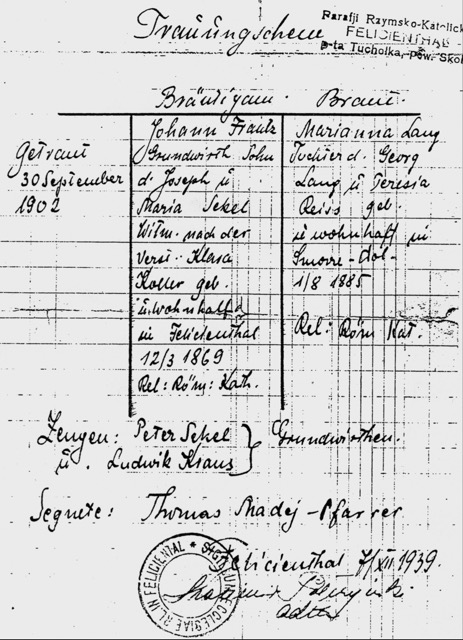 Trauungschein
Parafji Rzymsko-Katolick
FELICIENTHAL
p-ta Tucholka, pow. Skol
Bräutigam. Braut.
Getraut
30 September
1902
Johann Frantz
Grundwirth Sohn
d. Joseph u
Maria Sekel
Witw. nach der
verst. Klara
Koller geb.
u. wohnhaft
in Felicienthal
12/3 1869
Rel: Röm: Kath.
Marianna Lang
Tochter d. Georg
Lang u Teresia
Reiss geb
u wohnhaft in
Smorze-Dol-
1/8 1885
Rel: Röm Kat.
Zeugen: Peter Sekel
u. Ludwik Kraus } Grundwirthen.
Segnete: Thomas Madej - Pfarrer
Felicienthal 7/XII 1939.
SIGILLUM ECCLESIAE RL. IN FELICIENTAL